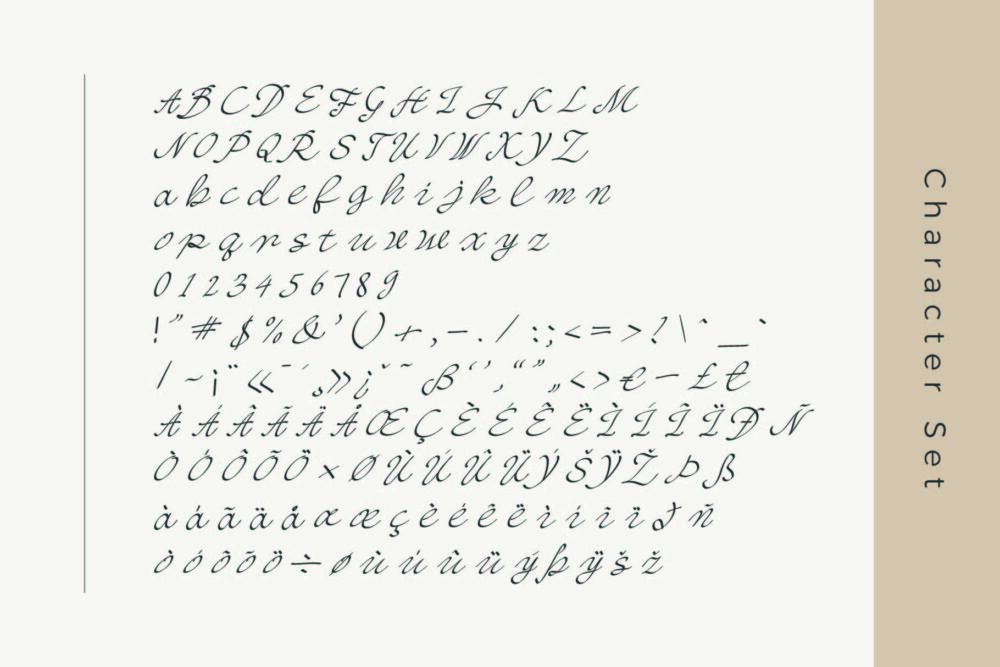 A B C D E F G H I J K L M
N O P Q R S T U V W X Y Z
a b c d e f g h i j k l m n
o p q r s t u v w x y z
0 1 2 3 4 5 6 7 8 9
! " # $ % & ' ( ) + , - . / : ; < = > ? \ ^ _ `
/ ~ ¡ ¨ « ¯ ´ ¸ » ¿ ˇ ˜ ß ‘ ’ ‚ “ ” „ < > € – £ €
À Á Â Ã Ä Å Œ Ç È É Ê Ë Ì Í Î Ï Ð Ñ
Ò Ó Ô Õ Ö × Ø Ù Ú Û Ü Ý Š Ÿ Ž Þ ß
à á ã ä å œ æ ç è é ê ë ì í î ï ð ñ
ò ó ô õ ö ÷ ø ù ú û ü ý þ ÿ š ž
Character Set